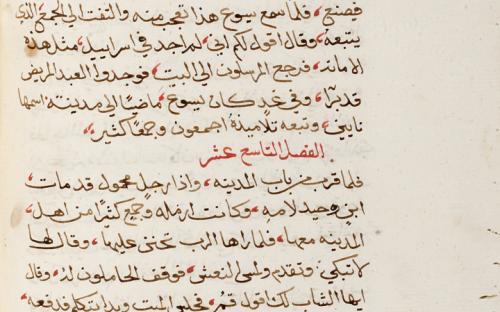 فيصنع، فلما سمع يسوع هذا تعجب منه والتفت الي الجمع الذي
يتبعه، وقال اقول لكم انني لم اجد في اسراييل مثل هذه
الامانه، فرجع المرسلون الي البيت، فوجدوا العبد المريض
قد برا، وفي غد كان يسوع ماضيًا الي مدينة اسمها
نايين، وتبعه تلاميذه اجمعون وجمعًا كثير،
الفصل التاسع عشر
فلما قرب من باب المدينه، واذا رجل محمول قد مات،
ابن وحيد لامه، وكانت ارمله، وجمع كثيرًا من اهل
المدينه معها، فلما راها الرب تحنن عليها، وقال لها
لا تبكي، وتقدم ولمس النعش، فوقف الحاملون له، وقال
ايها الشاب لك اقول قم، فجلس الميت وبدا يتكلم فدفعه،